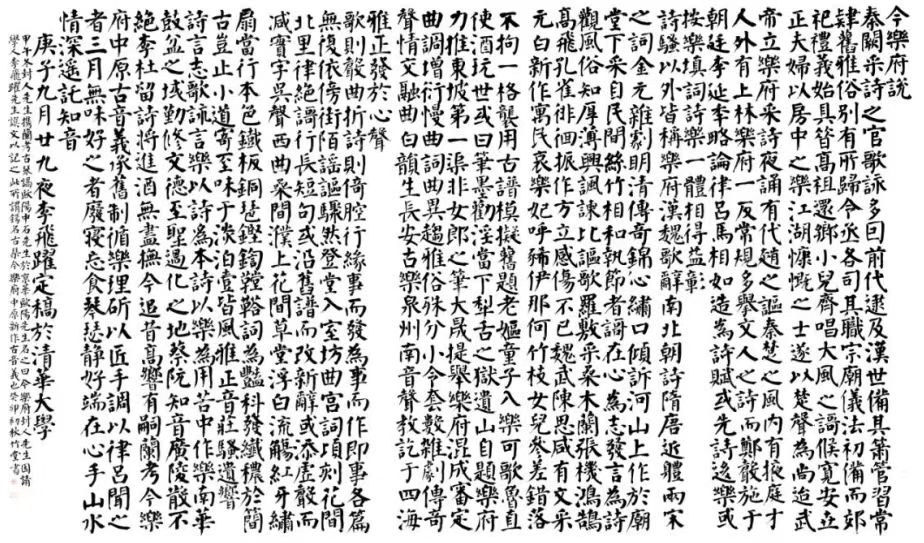 今樂府說
秦闕采詩之官歌詠多因前代逮及漢世備具簫管習常
肄舊雅俗別有所歸令丞各司其職宗廟儀法初備而郊
祀禮義始具昝高祖還鄉小兒齊唱大風之謌候寬安立
正夫婦以房中之樂江湖慷慨之士遂以楚聲為尚迨武
帝立府樂采詩夜誦有代趙之謳秦楚之風內有掖庭才
人外有上林樂府一反常規多舉文人之詩而鄭聲施于
朝廷李延年略論律呂馬相如造為詩賦或先詩後樂或
按樂填詞詩樂一體相得益彰
詩騷以外皆稱樂府漢魏歌辭南北朝詩隋唐近體兩宋
之詞金元雜劇明清傳奇錦心繡口傾訴河山上作於廟
堂下采自民間絲竹相和執節者謌在心為志發言為詩
觀風俗知厚薄興諷諫比謳歌羅敷采桑木蘭張機鴻鵠
高飛孔雀徘徊振作方立感傷不已魏武陳思咸有文采
元白新作寓民哀樂妃呼豨伊那何竹枝女兒參差錯落
不拘一格襲用古譜模擬舊題老嫗童子入樂可歌魯直
使酒玩世或曰筆墨勸淫當下犁舌之獄遺山自題樂府
力推東坡第一渠非女郎之筆大晟提舉樂府混成審定
曲調增衍慢曲詞曲異趨雅俗殊分小令套數雜劇傳奇
聲情交融曲白韻生長安古樂泉州南音聲教訖于四海
雅正發於心聲
歌則聲曲折詩則倚腔行緣事而發為事而作即事各篇
無復依傍街陌謠謳驟然登堂入室坊曲宮詞頃刻花間
北里律絕謌行長短句或沿舊譜而改新辭或添虛聲而
減實字吳聲西曲桑間濮上花間草堂浮白流觴紅牙繡
扇當行本色鐵板銅琶鏗鍧鞺鞳詞為豔科發纖穠於簡
古豈止小道寄至味于淡泊壹皆風雅正音莊騷遺響
詩言志歌詠言樂以詩為本詩以樂為用苦中作樂南華
鼓盆之域勤修文德至聖過化之地蔡阮知音廣陵散不
絕李杜留詩將進酒無盡撫今追昔高響有嗣蘭考今樂
府中原古音義承舊制循樂理斫以匠手調以律呂聞之
者三月無味好之者廢寢忘食琴瑟靜好端在心手山水
情深遙託知音
庚子九月廿九夜李飛躍定稿於清華大學